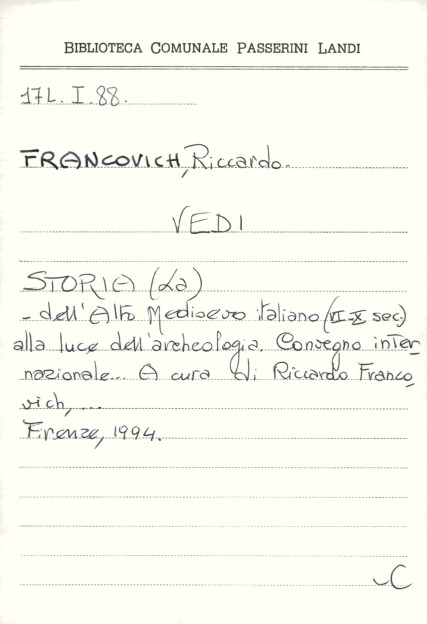 BIBLIOTECA COMUNALE PASSERINI LANDI
17L. I. 88.
FRANCOVICH, Riccardo.
VEDI
STORIA (La)
- dell'Alto Medioevo italiano (VI-X sec.)
alla luce dell'archeologia. Convegno inter_
nazionale... A cura di Riccardo Franco_
vich, ...
Firenze, 1994.